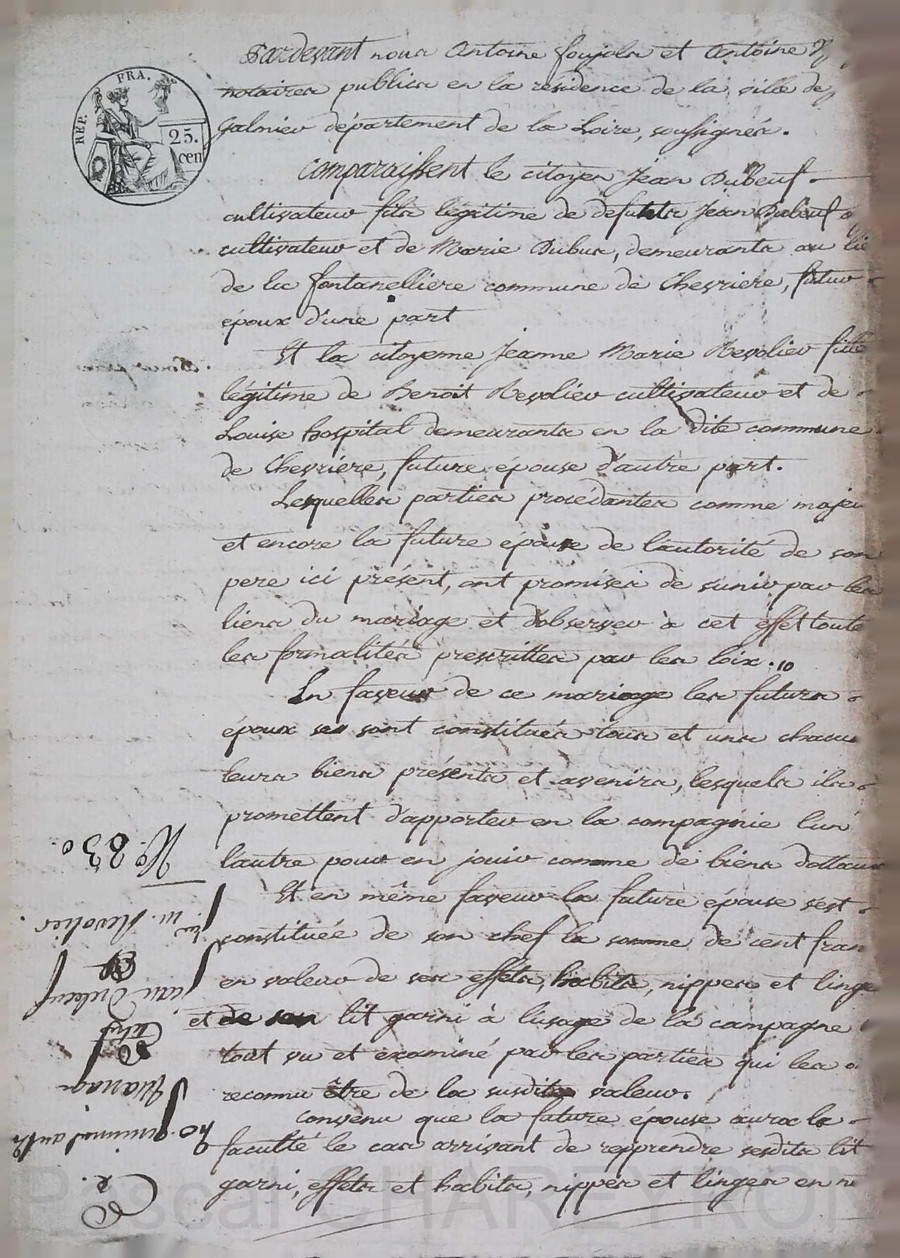 REP. FRA.
25.
cen
Pardevant nous Antoine foujols et Antoine
notaires publics en la résidence de la ville de
galmier département de la Loire, soussignés.
Comparaissent le citoyen Jean Dubeuf
cultivateur fils légitime de defunts Jean Dubeuf
cultivateur et de Marie Dubus, demeurants au li
de la fontanelliere commune de Chevriere, futur
époux d'une part
Et la citoyenne Jeanne Marie Revolier fille
légitime de Benoit Revolier cultivateur et de
Louise hospital demeurants en la dite commune
de Chevriere, future épouse d'autre part.
Lesquelles parties procedantes comme majeu
et encore la future epouse de l'autorité de son
pere ici présent, ont promises de s'unir par les
liens du mariage et d'observer à cet effet toute
les formalités prescrittes par les loix.
En faveur de ce mariage les futurs
époux se sont constitués tous et uns chacun
leurs biens présents et avenirs, lesquels ils
promettent d'apporter en la compagnie l'un
l'autre pour en jouir comme de biens dottaux
Et en même faveur la future épouse s'est
constituée de son chef la somme de cent fran
en valeur de ses effets, habits, nippes et linge
et lit garni à l'usage de la campagne
tout vu et examiné par les parties qui les o
reconnu être de la susdite valeur.
Convenu que la future épouse aura la
faculté le cas arrivant de repprendre sesdits lit
garni, effets et habits, nippes et linges en n
No. 830.
m. Revolier
jean Dubeuf
Mariage
Pascal CHAREYRON